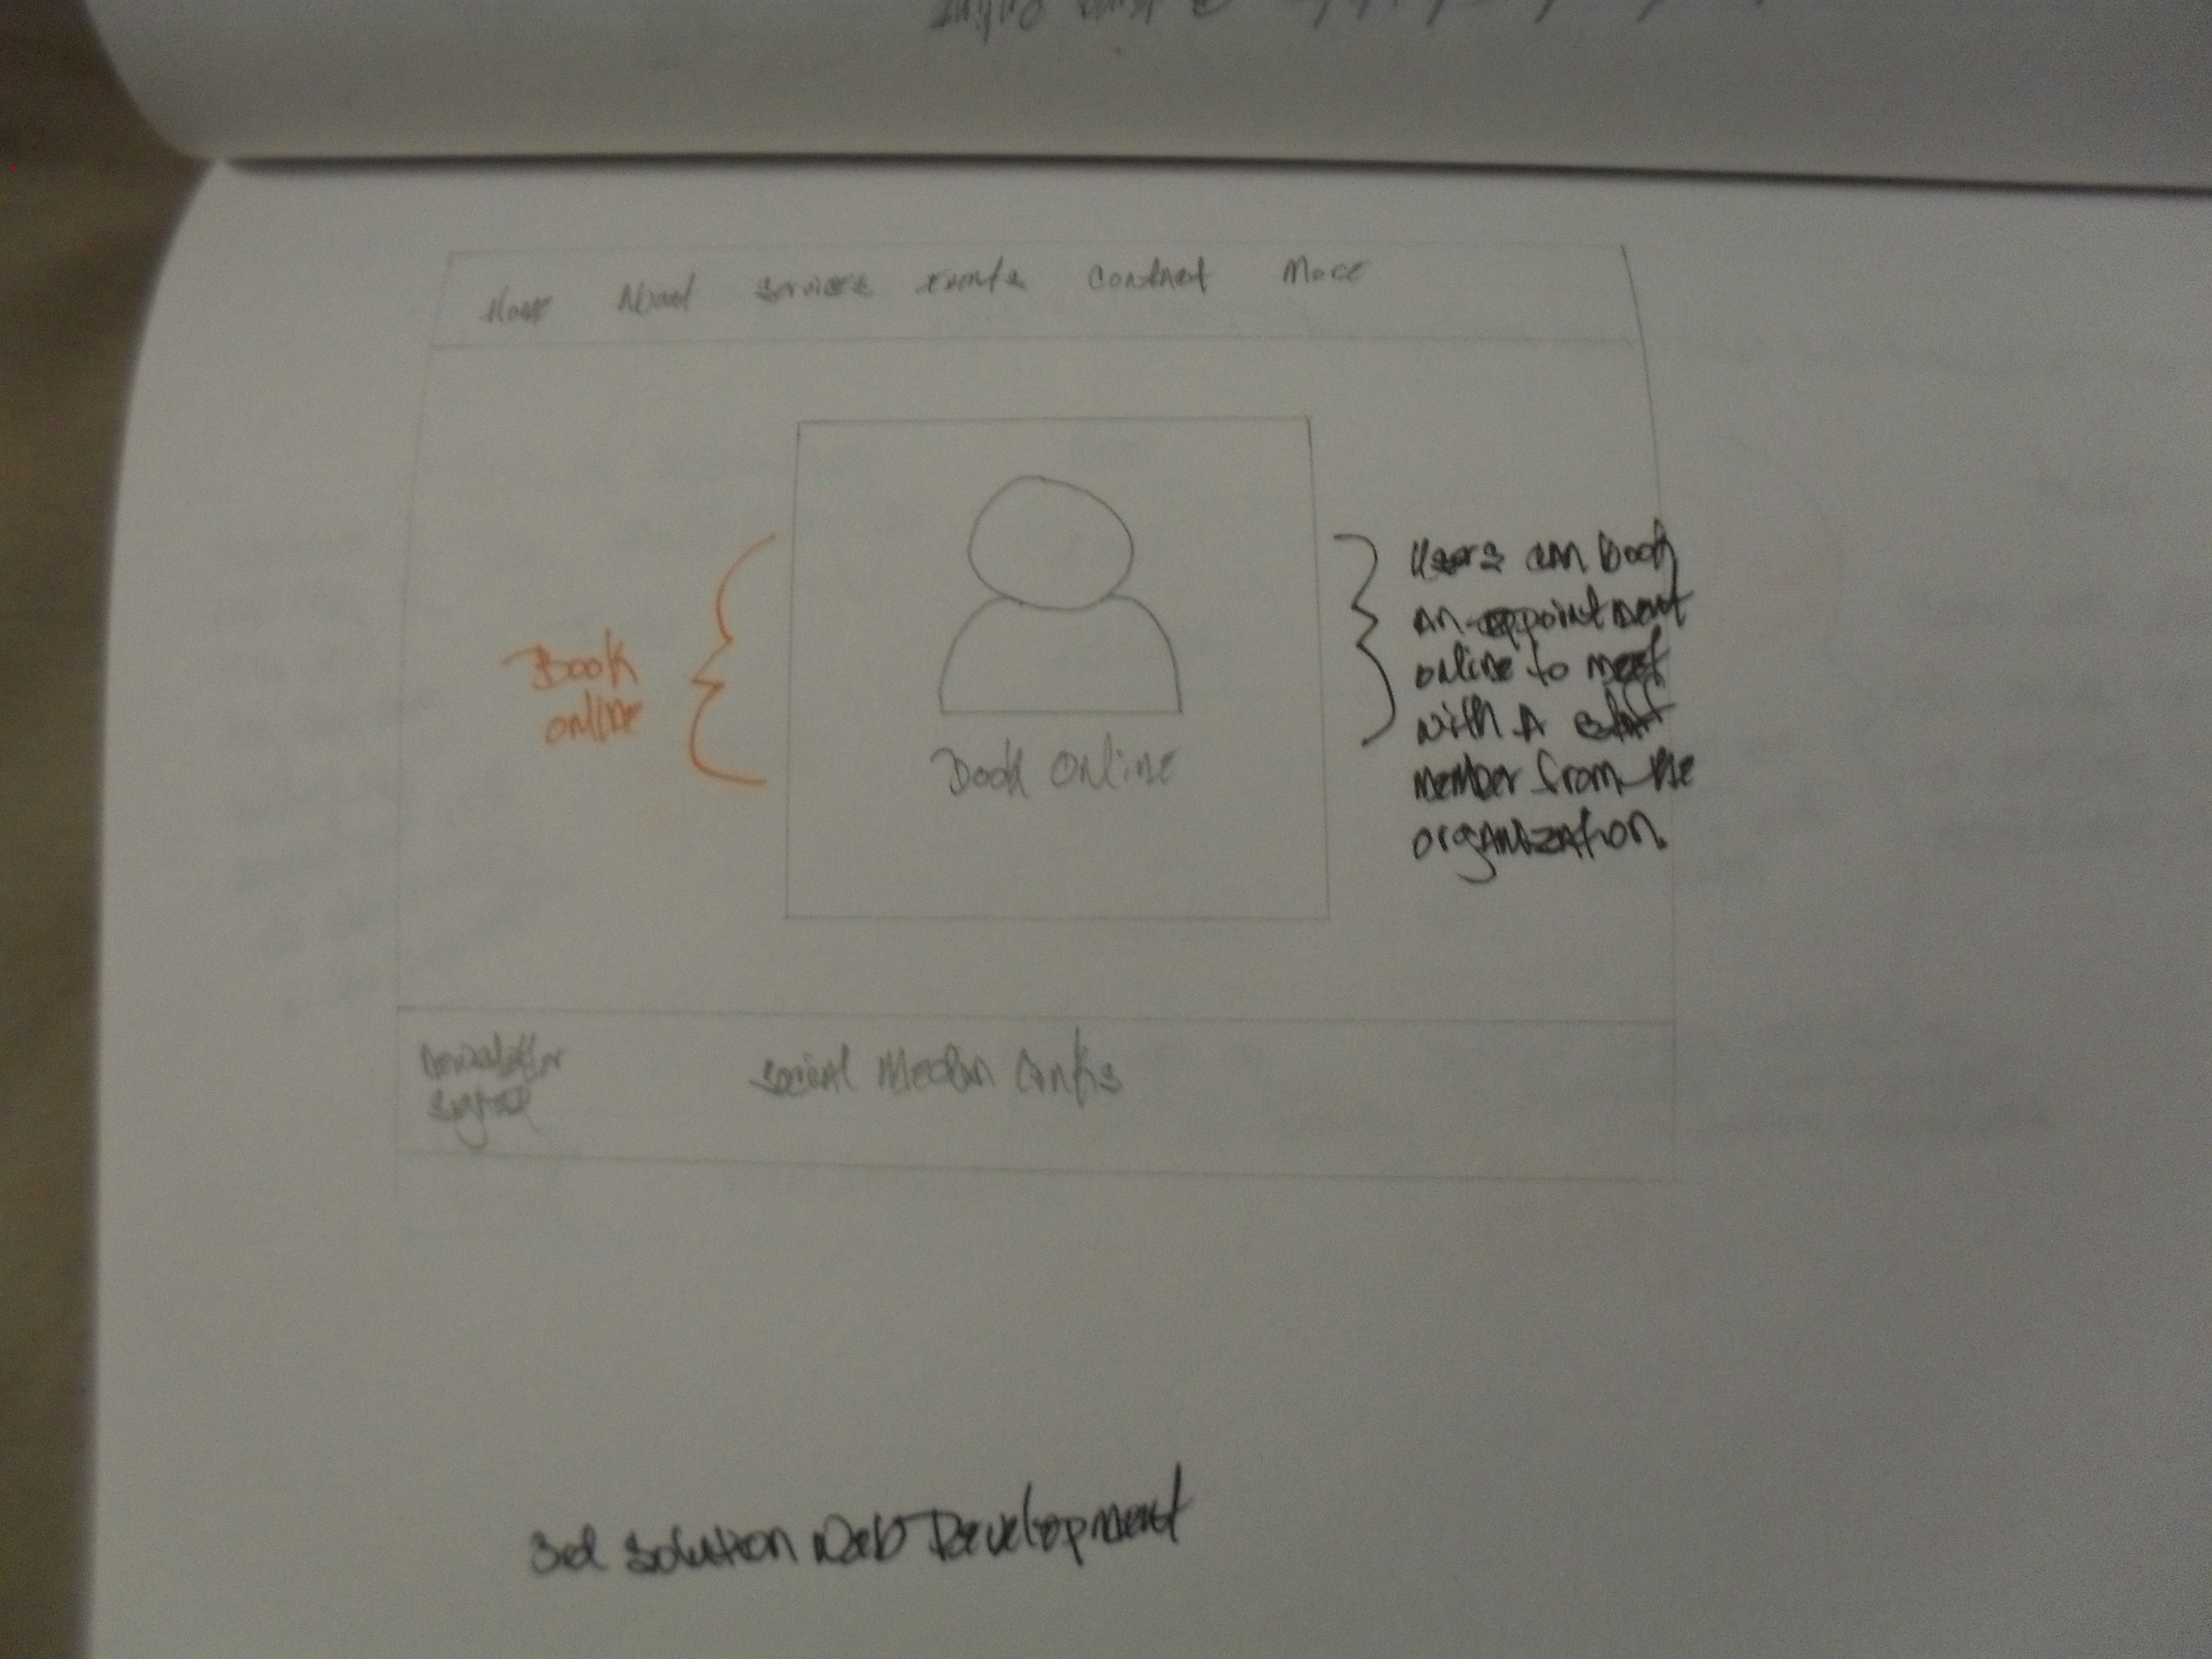 Home About Services Events Contact More
Book
online
Book Online
Users can book
an appointment
online to meet
with a staff
member from the
organization.
Newsletter
Signup
Social Media Links
3rd Solution Web Development